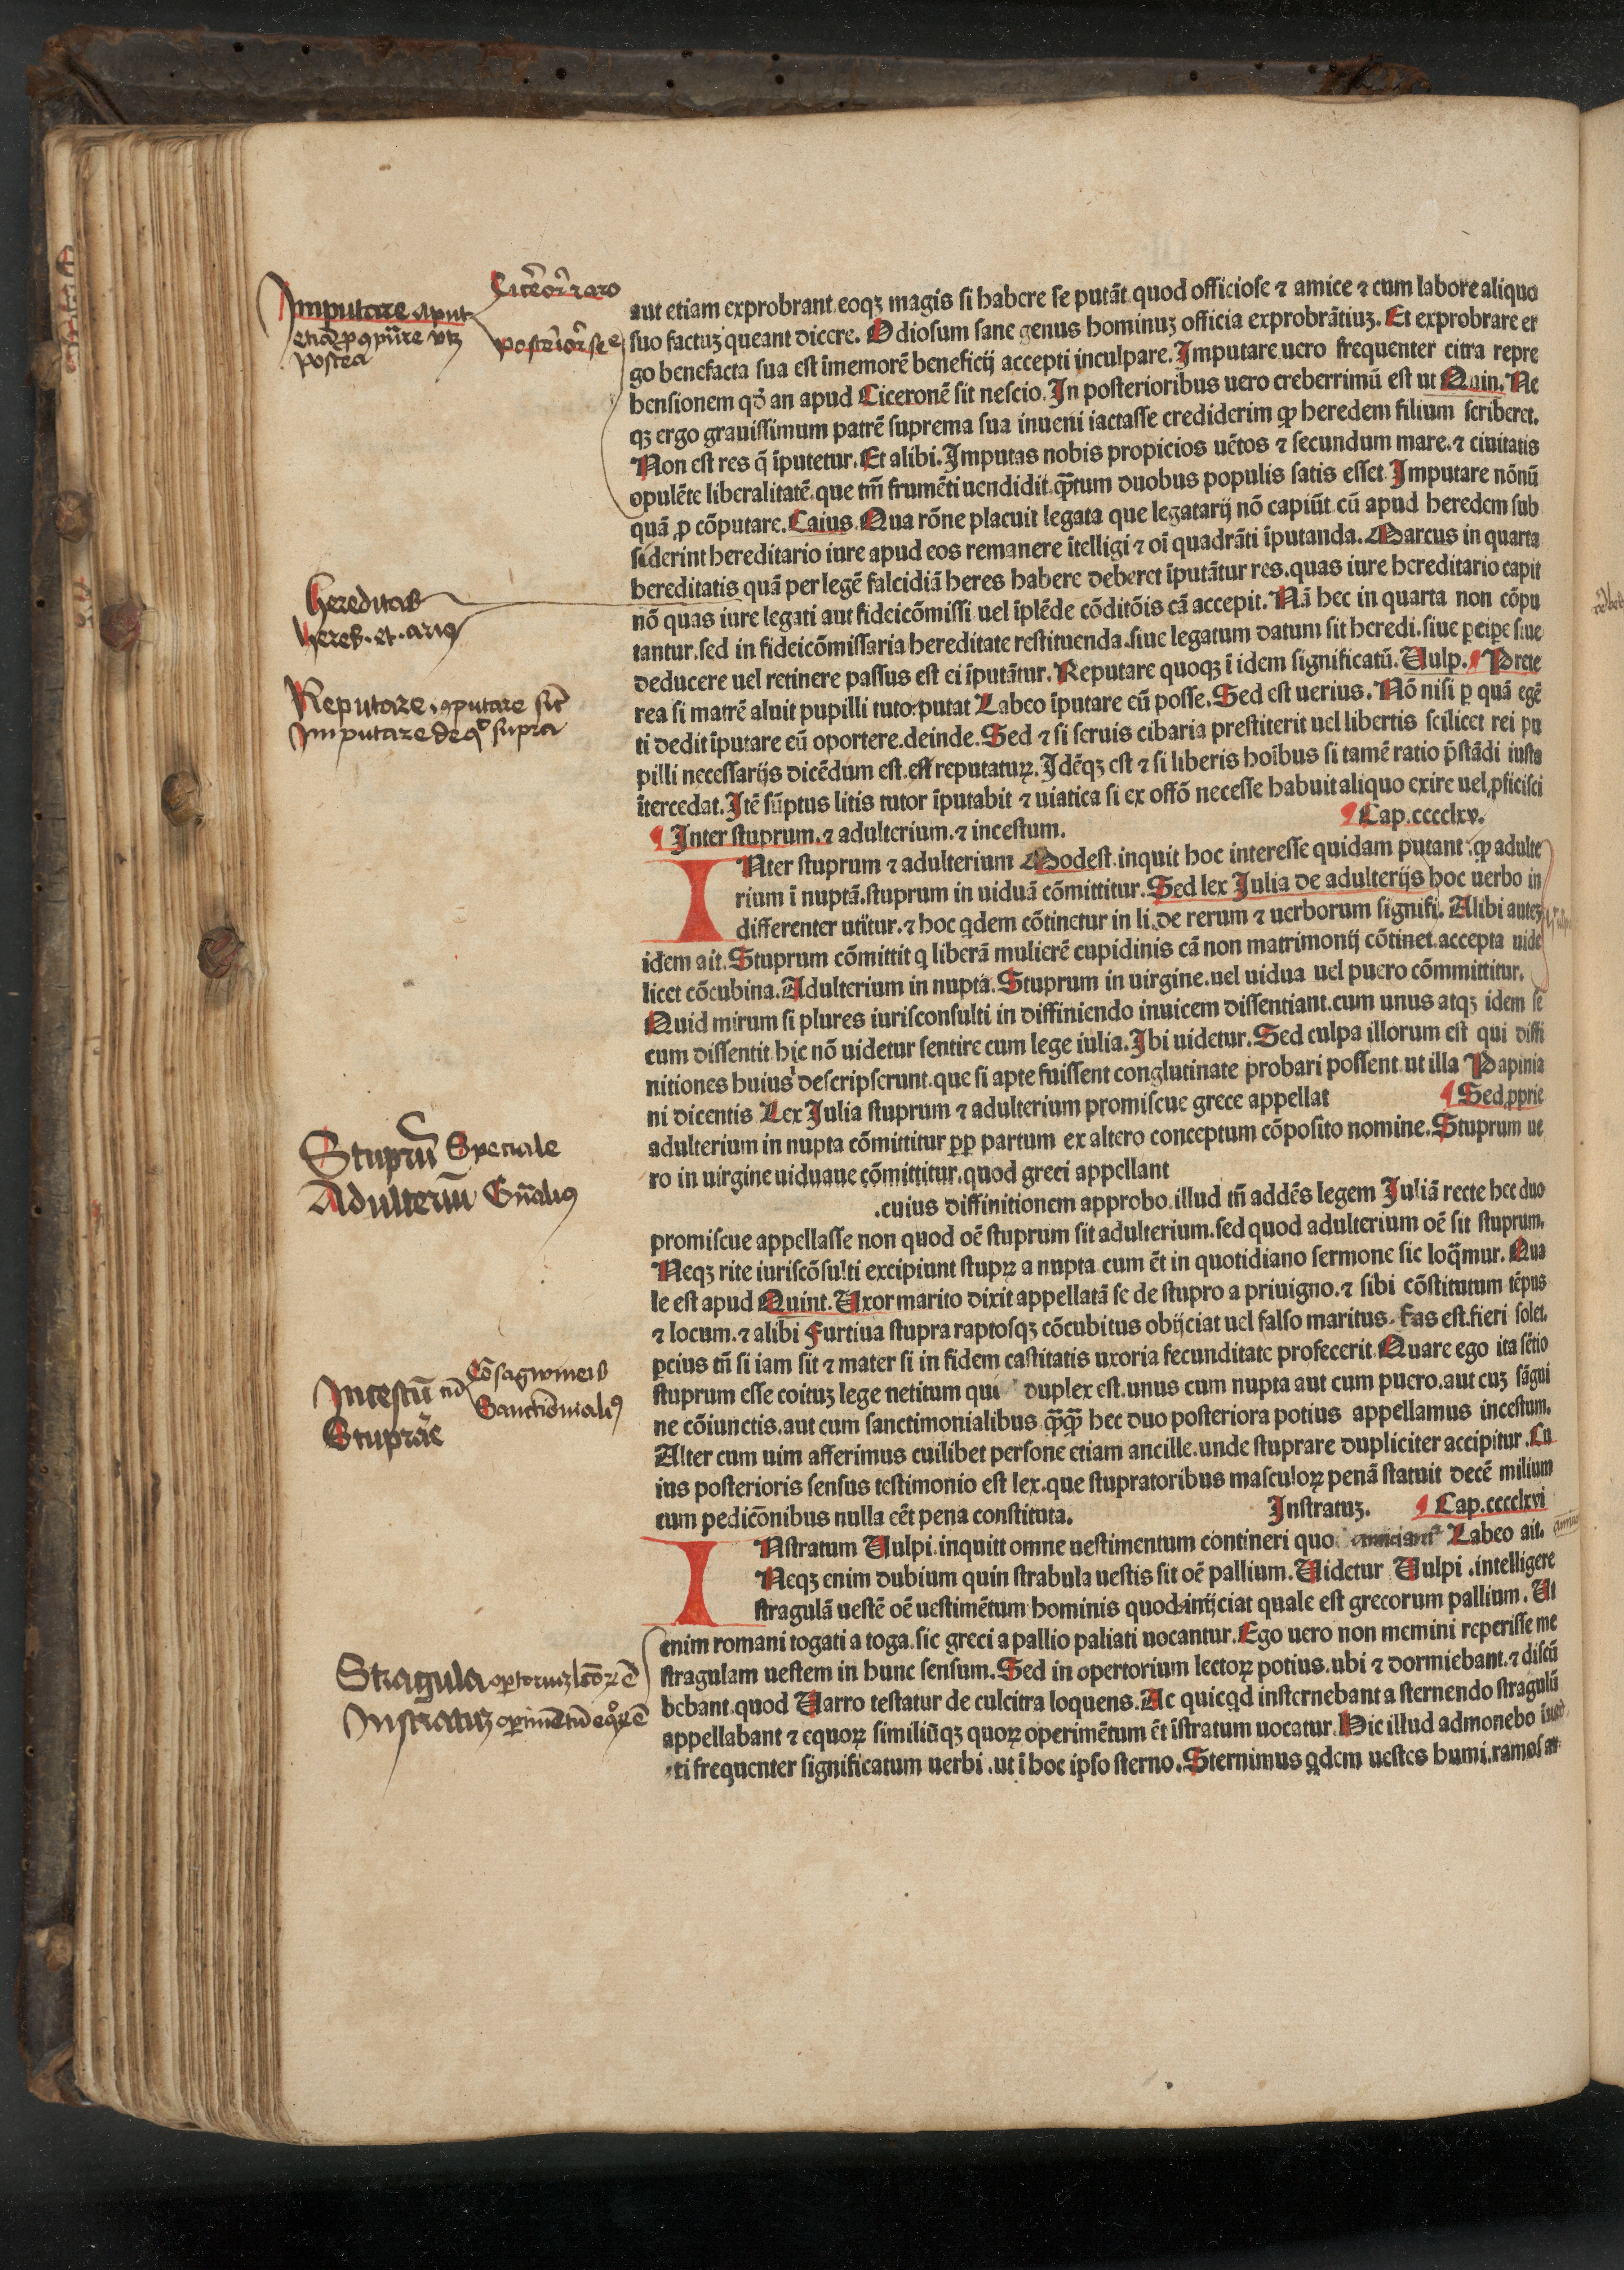 Cicero raro
Imputare
postea
aut etiam exprobrant eoqꝫ magis si habere se putāt quod officiose ⁊ amice ⁊ cum labore aliquo
suo factuꝫ queant dicere. Odiosum sane genus hominuꝫ officia exprobrātiuꝫ. Et exprobrare er
go benefacta sua est īmemorē beneficij accepti inculpare. Imputare uero frequenter citra repre
hensionem qd̄ an apud Ciceronē sit nescio. In posterioribus uero creberrimū est ut Quin. Ne
qꝫ ergo grauissimum patrē suprema sua inueni iactasse crediderim ꝙ heredem filium scriberet.
Non est res q̄ īputetur. Et alibi. Imputas nobis propicios uētos ⁊ secundum mare. ⁊ ciuitatis
opulēte liberalitatē. que tm̄ frumēti uendidit. qꝫtum duobus populis satis esset. Imputare nōnū
quā ꝓ cōputare. Caius. Qua rōne placuit legata que legatarij nō capiūt cū apud heredem sub
siderint hereditario iure apud eos remanere ītelligi ⁊ oī quadrāti īputanda. Marcus in quarta
hereditatis quā per legē falcidiā heres habere deberet īputātur res. quas iure hereditario capit
nō quas iure legati aut fideicōmissi uel īplēde cōditōis cā accepit. Nā hec in quarta non cōpu
tantur. sed in fideicōmissaria hereditate restituenda. siue legatum datum sit heredi. siue ꝑcipe siue
deducere uel retinere passus est ei īputātur. Reputare quoqꝫ ī idem significatū. Vulp. ¶ Prete
rea si matrē aluit pupilli tutor putat Labeo īputare eū posse. Sed est uerius. Nō nisi ꝑ quā egē
ti dedit īputare eū oportere. deinde. Sed ⁊ si seruis cibaria prestiterit uel libertis scilicet rei pu
pilli necessarijs dicēdum est. est reputaturꝝ. Idēqꝫ est ⁊ si liberis hoībus si tamē ratio p̄stādi iusta
ītercedat. Itē sūptus litis tutor īputabit ⁊ uiatica si ex offō necesse habuit aliquo exire uel ꝓficisci
hereditas
Reputare
Imputare de q̊ supra
¶ Inter stuprum. ⁊ adulterium. ⁊ incestum. ¶ Cap. cccclxv.
INter stuprum ⁊ adulterium Modest. inquit hoc interesse quidam putant. ꝙ adulte
rium ī nuptā. stuprum in uiduā cōmittitur. Sed lex Julia de adulterijs hoc uerbo in
differenter utitur. ⁊ hoc qdem cōtinetur in li. de rerum ⁊ uerborum signifi. Alibi auteꝫ
idem ait. Stuprum cōmittit q liberā mulierē cupidinis cā non matrimonij cōtinet. accepta uide
licet cōcubina. Adulterium in nupta. Stuprum in uirgine. uel uidua uel puero cōmmittitur.
Quid mirum si plures iurisconsulti in diffiniendo inuicem dissentiant. cum unus atqꝫ idem se
cum dissentit. hic nō uidetur sentire cum lege iulia. Ibi uidetur. Sed culpa illorum est qui diffi
nitiones huius descripserunt. que si apte fuissent conglutinate probari possent. ut illa Papinia
ni dicentis Lex Julia stuprum ⁊ adulterium promiscue grece appellat ¶ Sed ꝓprie
adulterium in nupta cōmittitur ꝓꝑ partum ex altero conceptum cōposito nomine. Stuprum ue
ro in uirgine uiduaue cōmittitur. quod greci appellant
.cuius diffinitionem approbo. illud tn̄ addēs legem Juliā recte hec duo
promiscue appellasse non quod oē stuprum sit adulterium. sed quod adulterium oē sit stuprum.
Neqꝫ rite iuriscōsulti excipiunt stupꝝ a nupta cum ēt in quotidiano sermone sic loq̄mur. Qua
le est apud Quint. Uxor marito dixit appellatā se de stupro a priuigno. ⁊ sibi cōstitutum tēpus
⁊ locum. ⁊ alibi Furtiua stupra raptosqꝫ cōcubitus obijciat uel falso maritus. Fas est. fieri solet.
peius tn̄ si iam sit ⁊ mater si in fidem castitatis uxoria fecunditate profecerit. Quare ego ita sētio
stuprum esse coituꝫ lege uetitum qui duplex est. unus cum nupta aut cum puero. aut cuꝫ sāgui
ne cōiunctis. aut cum sanctimonialibus qꝫqꝫ hec duo posteriora potius appellamus incestum.
Alter cum uim afferimus cuilibet persone etiam ancille. unde stuprare dupliciter accipitur. Cu
ius posterioris sensus testimonio est lex. que stupratoribus masculoꝝ penā statuit decē milium
cum pedicōnibus nulla eēt pena constituta. Instratuꝫ. ¶ Cap. cccclxvi
Stuprū Speciale
Adulteriū Gn̄alius
Incestū
Stuprare
INstratum Vulpi. inquitt omne uestimentum contineri quo Labeo ait.
Neqꝫ enim dubium quin strabula uestis sit oē pallium. Videtur Vulpi. intelligere
stragulā uestē oē uestimētum hominis quod inijciat quale est grecorum pallium. Ut
enim romani togati a toga. sic greci a pallio paliati uocantur. Ego uero non memini reperisse me
stragulam uestem in hunc sensum. Sed in opertorium lectoꝝ potius. ubi ⁊ dormiebant. ⁊ discū
bebant. quod Varro testatur de culcitra loquens. Ac quicqd insternebant a sternendo stragulū
appellabant ⁊ equoꝝ similiūqꝫ quoꝝ operimētum ēt īstratum uocatur. Hic illud admonebo
ti frequenter significatum uerbi. ut ī hoc ipso sterno. Sternimus qdem uestes humi. ramos
Stragula
Instratuꝫ